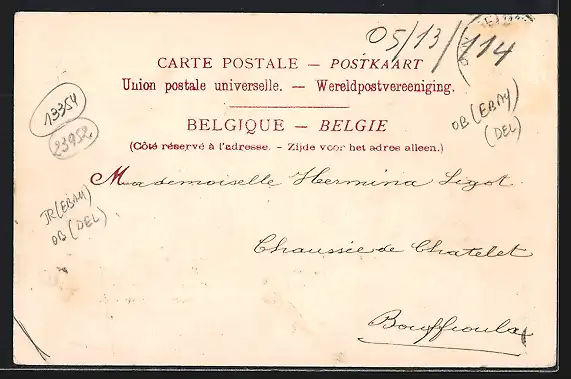 05/13/114
CARTE POSTALE — POSTKAART
Union postale universelle. — Wereldpostvereeniging.
BELGIQUE — BELGIE
(Côté réservé à l'adresse. - Zijde voor het adres alleen.)
13354
23952
OB (EBAY)
(DEL)
Mademoiselle Hermina Ligot.
JR (EBAY)
OB (DEL)
Chaussée de Chatelet
Bouffioulx